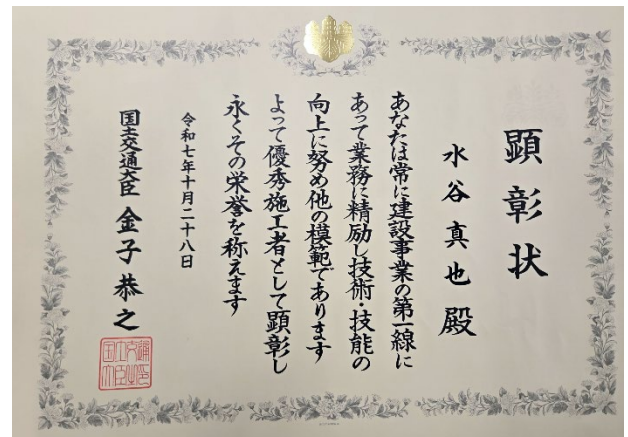 顕彰状
水谷真也殿
あなたは常に建設事業の第一線に
あって業務に精励し技術・技能の
向上に努め他の模範であります
よって優秀施工者として顕彰し
永くその栄誉を称えます
令和七年十月二十八日
国土交通大臣 金子恭之